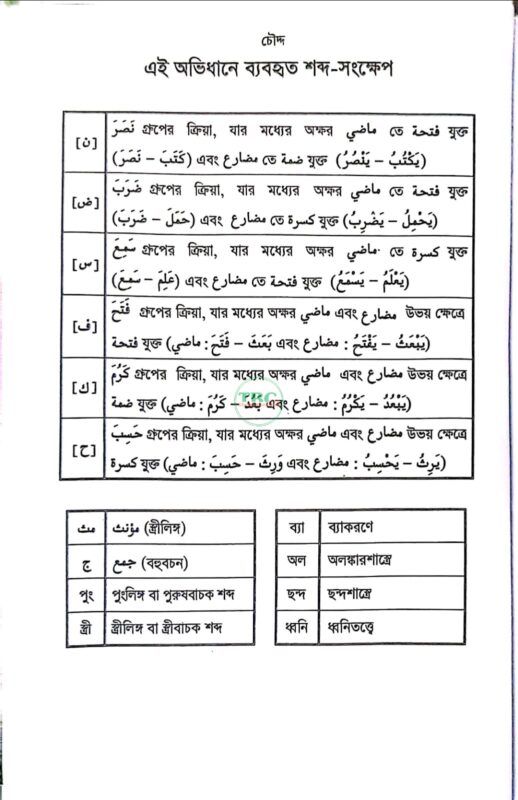 চৌদ্দ
এই অভিধানে ব্যবহৃত শব্দ-সংক্ষেপ
[ن] نَصَرَ গ্রুপের ক্রিয়া, যার মধ্যের অক্ষর ماضي তে فتحة যুক্ত
(نَصَرَ – كَتَبَ) এবং مضارع তে ضمة যুক্ত (يَنْصُرُ – يَكْتُبُ)
[ض] ضَرَبَ গ্রুপের ক্রিয়া, যার মধ্যের অক্ষর ماضي তে فتحة যুক্ত
(ضَرَبَ – حَمَلَ) এবং مضارع তে كسرة যুক্ত (يَضْرِبُ – يَحْمِلُ)
[س] سَمِعَ গ্রুপের ক্রিয়া, যার মধ্যের অক্ষর ماضي তে كسرة যুক্ত
(سَمِعَ – عَلِمَ) এবং مضارع তে فتحة যুক্ত (يَسْمَعُ – يَعْلَمُ)
[ف] فَتَحَ গ্রুপের ক্রিয়া, যার মধ্যের অক্ষর ماضي এবং مضارع উভয় ক্ষেত্রে
فتحة যুক্ত (ماضي : فَتَحَ – بَعَثَ এবং مضارع : يَفْتَحُ – يَبْعَثُ)
[ك] كَرُمَ গ্রুপের ক্রিয়া, যার মধ্যের অক্ষর ماضي এবং مضارع উভয় ক্ষেত্রে
ضمة যুক্ত (ماضي : كَرُمَ – بَعُدَ এবং مضارع : يَكْرُمُ – يَبْعُدُ)
[ح] حَسِبَ গ্রুপের ক্রিয়া, যার মধ্যের অক্ষর ماضي এবং مضارع উভয় ক্ষেত্রে
كسرة যুক্ত (ماضي : حَسِبَ – وَرِثَ এবং مضارع : يَحْسِبُ – يَرِثُ)
TRC
مث مؤنث (স্ত্রীলিঙ্গ)
ج جمع (বহুবচন)
পুং পুংলিঙ্গ বা পুরুষবাচক শব্দ
স্ত্রী স্ত্রীলিঙ্গ বা স্ত্রীবাচক শব্দ
ব্যা ব্যাকরণে
অল অলঙ্কারশাস্ত্রে
ছন্দ ছন্দশাস্ত্রে
ধ্বনি ধ্বনিতত্ত্বে